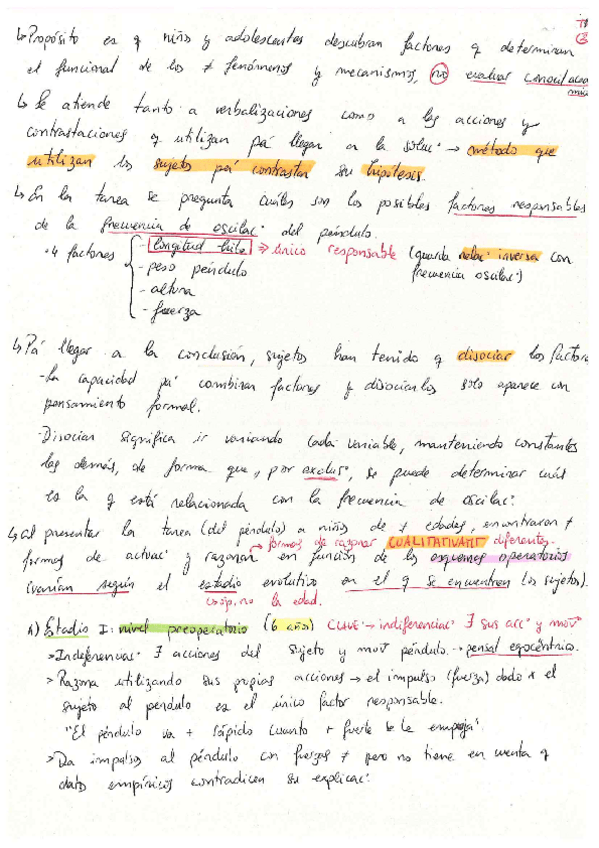 ↳ Propósito es q niños y adolescentes descubran factores q determinan
el funcional de los ≠ fenómenos y mecanismos, no evaluar
↳ Se atiende tanto a verbalizaciones como a las acciones y
contrastaciones q utilizan pa' llegar a la soluc° → método que
utilizan los sujetos pa' contrastar su hipótesis.
↳ En la tarea se pregunta cuáles son los posibles factores responsables
de la frecuencia de oscilac° del péndulo.
· 4 factores { - longitud hilo ⇒ único responsable (guarda relac° inversa con
- peso péndulo frecuencia oscilac°)
- altura
- fuerza
↳ Pa' llegar a la conclusión, sujetos han tenido q disociar los factore
- La capacidad pa' combinar factores y disociarlos solo aparece en
pensamiento formal.
· Disociar significa ir variando cada variable, manteniendo constantes
las demás, de forma que, por exclus°, se puede determinar cuál
es la q está relacionada con la frecuencia de oscilac°.
↳ Al presentar la tarea (del péndulo) a niños de ≠ edades, encontraron ≠
→ formas de razonar CUALITATIVAMT diferentes.
formas de actuac° y razonar en función de los esquemas operatorios
(varían según el estadio evolutivo en el q se encuentren los sujetos).
no la edad.
A) Estadio I: nivel preoperatorio (6 años) CLAVE → indiferenciac° ∃ sus acc° y movᵗᵒ
> Indiferenciac° ∃ acciones del sujeto y movᵗᵒ péndulo. → pensaᵗ egocéntrico.
> Razona utilizando sus propias acciones → el impulso (fuerza) dado x el
sujeto al péndulo es el único factor responsable.
"El péndulo va + rápido cuanto + fuerte se le empuja".
> Da impulsos al péndulo con fuerzas ≠ pero no tiene en cuenta q
datos empíricos contradicen su explicac°.